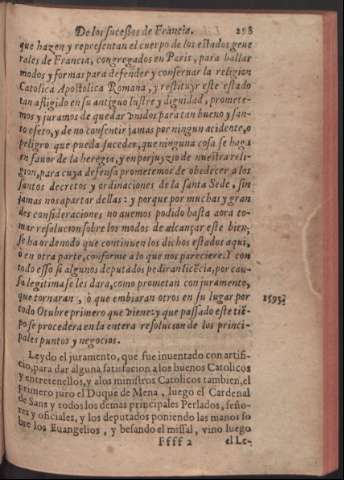 De los sucessos de Francia. 298
que hazen y representan el cuerpo de los estados gene
rales de Francia, congregados en Paris, para hallar
modos y formas para defender y conseruar la religion
Catolica Apostolica Romana, y restituyr este estado
tan afligido en su antiguo lustre y dignidad, promete-
mos y juramos de quedar vnidos para tan bueno y san-
to efeto, y de no consentir jamas por ningun acidente, o
peligro que pueda suceder, que ninguna cosa se haga
en fauor de la heregia, y en perjuyzio de nuestra reli-
gion, para cuya defensa prometemos de obedecer a los
santos decretos y ordinaciones de la santa Sede, sin
jamas nos apartar dellas: y porque por muchas y gran
des consideraciones no auemos podido hasta aora to-
mar resolucion sobre los modos de alcançar este bien,
se ha ordenado que continuen los dichos estados aqui,
o en otra parte, conforme a lo que nos pareciere. Y con
todo esso si algunos deputados pediran licēcia, por cau-
sa legitima se les dara, como prometan con juramento,
que tornaran, ò que embiaran otros en su lugar por
todo Otubre primero que viene, y que passado este tiē-
po se procedera en la entera resolucion de los princi-
pales puntos y negocios.
1593
Leydo el juramento, que fue inuentado con artifi-
cio, para dar alguna satisfacion a los buenos Catolicos
y entretenellos, y a los ministros Catolicos tambien, el
primero juro el Duque de Mena, luego el Cardenal
de Sans y todos los demas principales Perlados, seño-
res y oficiales, y los deputados poniendo las manos so
bre los Euangelios, y besando el missal, vino luego
Ffff 2 el Le-